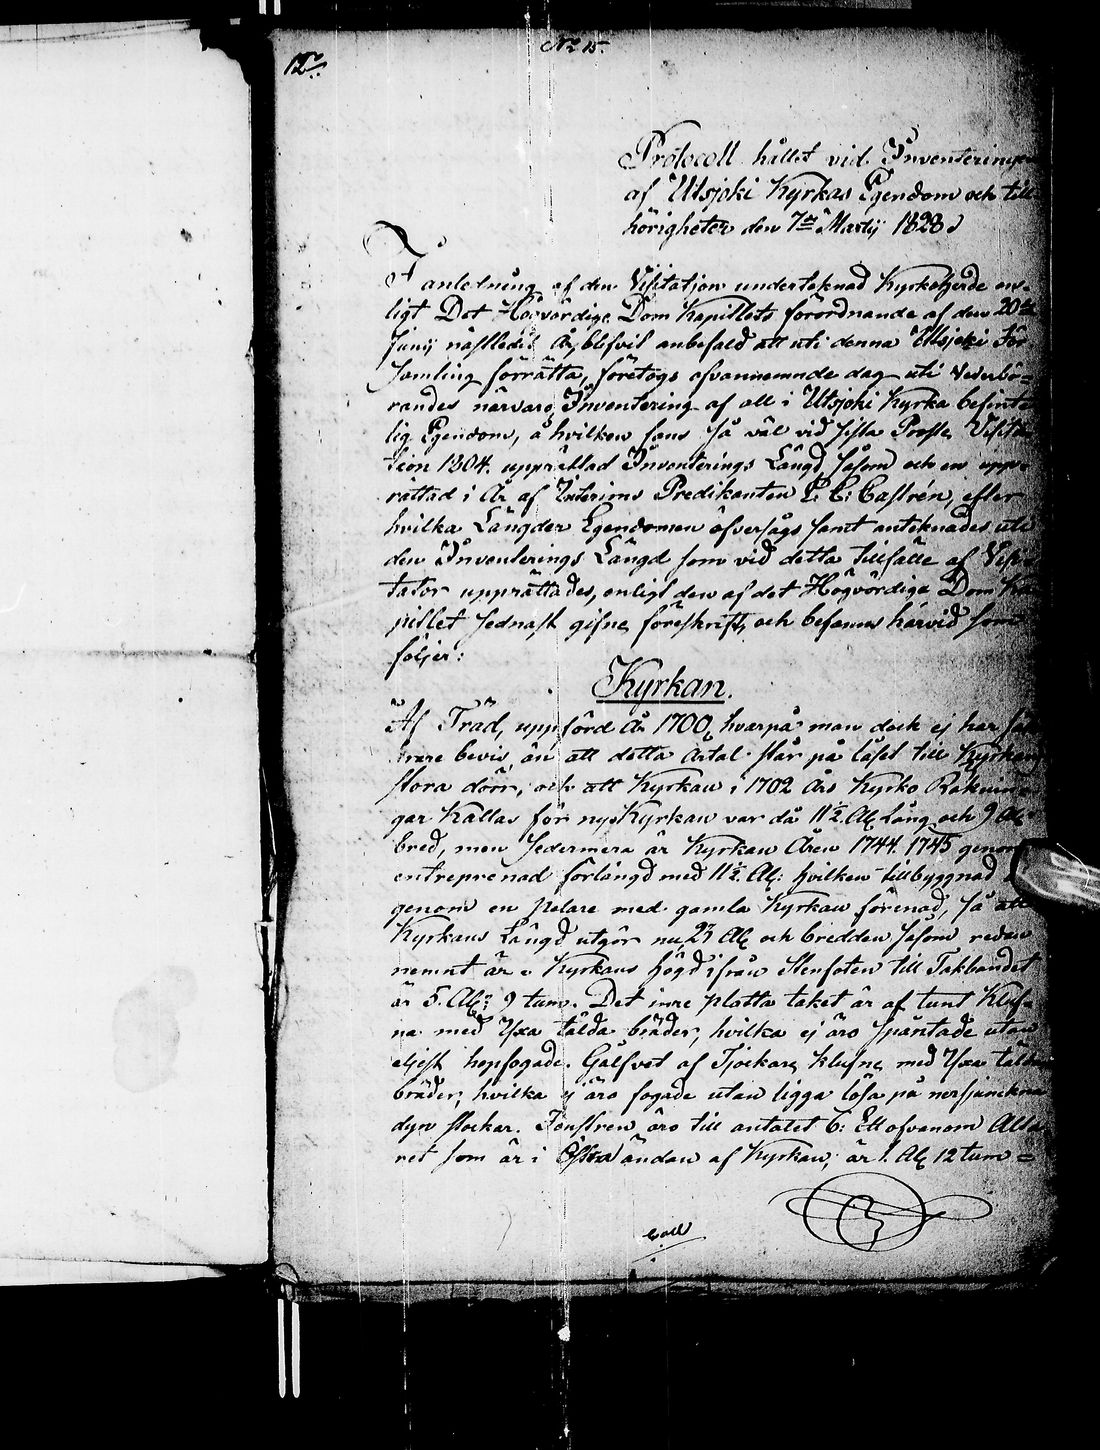 No 15.
12.
Protocoll hållet vid Inventeringen
af Utsjoki Kyrkas Egendom och till-
hörigheter den 7de Martij 1828
I anledning af den Visitation undertecknad Kyrkoherde en-
ligt Det Högvördige Dom Kapitlets förordnande af den 20de
Junij nästledit År, blifvit anbefald att uti denna Utsjoki För
samling förrätta, företogs ofvannemnde dag uti Vederbö-
randes närvaro, Inventering af all i Utsjoki Kyrka befinte-
lig Egendom, å hvilken fans så väl vid sista Prosts Visita-
tion 1804. upprättad Inventerings Längd, såsom och en upp-
rättad i År af Interims Predikanten E: E: Castrén, efter
hvilka Längder Egendomen öfversågs samt anteknades uti
den Inventerings Längd som vid detta tillfälle af Visi-
tator upprättades, enligt den af det Högvördige Dom Ka
pitlet sednast gifne föreskrift, och befanns härvid som
följer:
Kyrkan.
Af Träd, uppförd År 1700, hvarpå man dock ej har
bevis, än att detta Artal står på låset till Kyrkans
stora dörr, och att Kyrkan i 1702 Års Kyrko Räknin-
gar kallas för ny, Kyrkan var då 11½ Aln Lång och 9 Aln
bred, men sedermera är Kyrkan Åren 1744. 1745 genom
entreprenad förlängd med 11½. Aln: hvilken tillbyggnad
genom en pelare med gamla Kyrkan förenad, så att
Kyrkans Längd utgör nu 23 Aln och bredden såsom redan
nemnt är. Kyrkans högd ifrån Stenfoten till Takbandet
är 5. Aln: 9 tum. Det inre platta taket är af tunt Kluf-
na med Yxa tälda bräder, hvilka ej äro spåntade utan
eljest hopfogade. Gålfvet af Tjockare klufne, med Yxa täl
bräder, hvilka ej äro fogade utan ligga lösa på nersjunckna
dyn stockar. Fönstren äro till antalet 6: Ett ofvanom Alta
ret som är i Östra ändan af Kyrkan, är 1. Aln 12 tum =